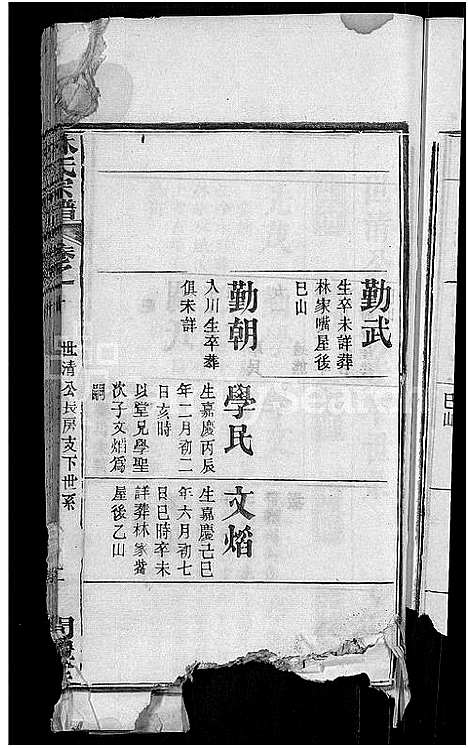 勤武
生卒未詳葬
林家嘴屋後
巳山
勤朝
入川生卒葬
俱未詳
學民
生嘉慶丙辰
年二月初二
日亥時
以堂兄學聖
次子文焰為
嗣
文焰
生嘉慶己巳
年六月初七
日巳時卒未
詳葬林家嘴
屋後乙山
氏宗譜
卷之
世清公長房支下世系
巳山